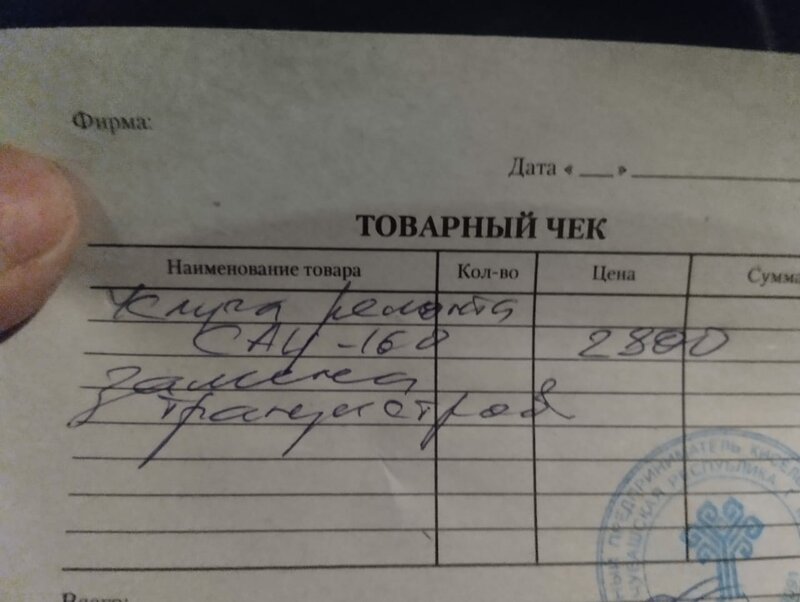 Фирма:
Дата « __ » ____
ТОВАРНЫЙ ЧЕК
Наименование товара Кол-во Цена Сумма
Услуга ремонта
САИ-160 2800
Замена
8 транзисторов
ПРЕДПРИНИМАТЕЛЬ КИСЕЛ
ЧУВАШСКАЯ РЕСПУБЛИКА Г
Всего: